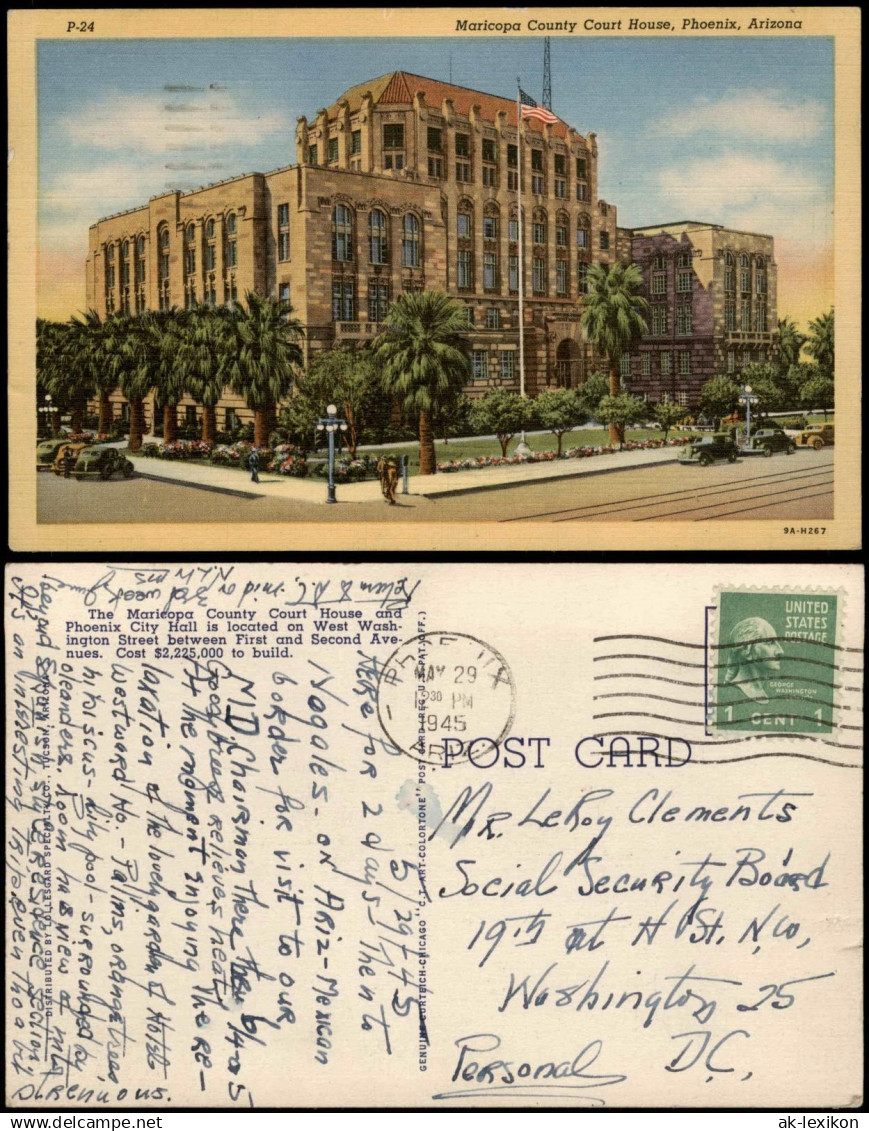 P-24
Maricopa County Court House, Phoenix, Arizona
9A-H267
The Maricopa County Court House and
Phoenix City Hall is located on West Wash-
ington Street between First and Second Ave-
nues. Cost $2,225,000 to build.
5/29/45
Here for 2 days then to
Nogales - on Ariz - Mexican
border for visit to our
N.D. Chairman there
Good breeze relieves heat
At the moment enjoying the re-
laxation of the lovely garden of Hotel
Westward Ho. - Palms, orange trees
hibiscus - lily pool - surrounded by
oleanders. Room has view of mts
beyond Spanish style residence section,
It's an interesting trip even tho a bit
strenuous.
Return to D.C. mid or 3rd week
June
DISTRIBUTED BY LOLLESGARD SPECIALTY CO., TUCSON, ARIZONA
GENUINE CURTEICH-CHICAGO "C. T. ART-COLORTONE" POST CARD (REG. U. S. PAT. OFF.)
PHOENIX
MAY 29
PM
1945
ARIZ.
UNITED
STATES
POSTAGE
GEORGE
WASHINGTON
1 CENT 1
POST CARD
Mr. LeRoy Clements
Social Security Board
19th at H St. N.W,
Washington 25
D.C.
Personal
ak-lexikon